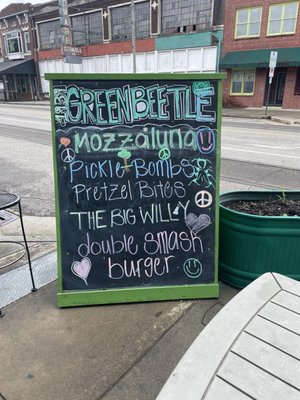 GREEN BEETLE
Mozzaluna
Pickle Bombs
Pretzel Bites
THE BIG WILLY
double smash
burger